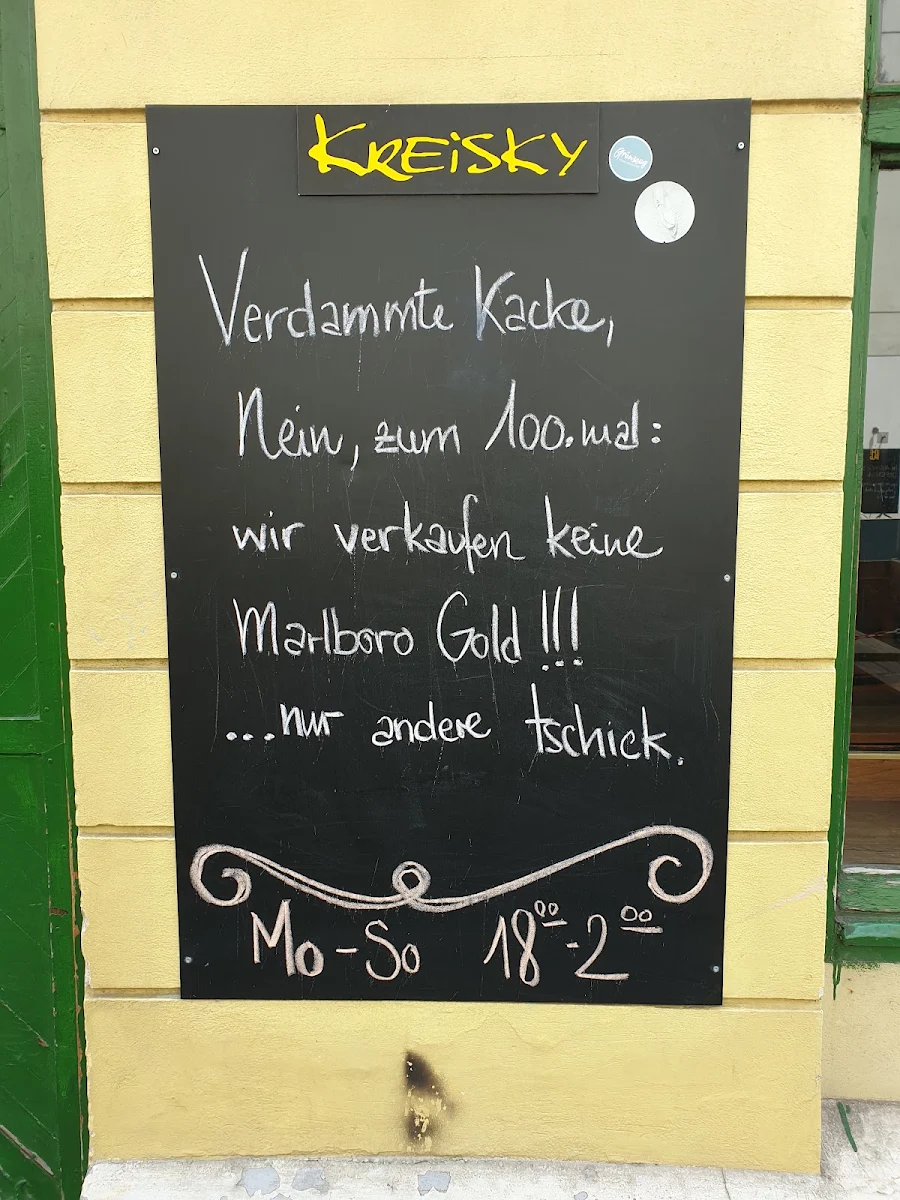 KREiSKY
Verdammte Kacke,
Nein, zum 100.mal:
wir verkaufen keine
Marlboro Gold !!!
...nur andere tschick.
Mo-So 18⁰⁰-2⁰⁰